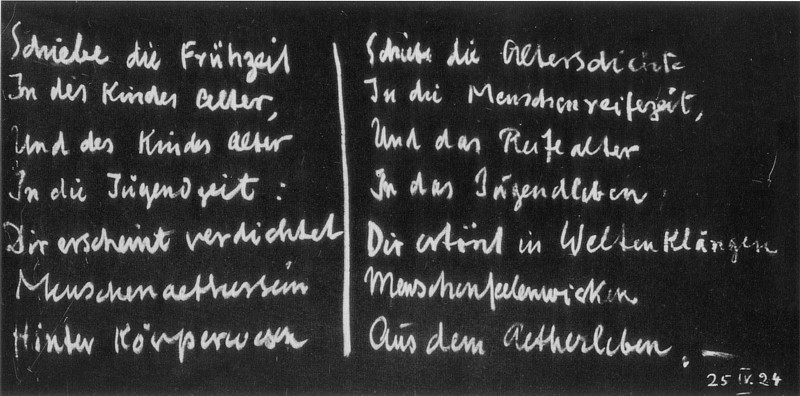 Schiebe die Frühzeit
In des Kindes Alter,
Und des Kindes Alter
In die Jugendzeit:
Dir erscheint verdichtet
Menschenaethersein
Hinter Körperwesen
Schiebe die Altersdichte
In die Menschenreifezeit,
Und das Reifealter
In das Jugendleben
Dir ertönt in Weltenklängen
Menschenseelenwirken
Aus dem Aetherleben. —
25 IV. 24